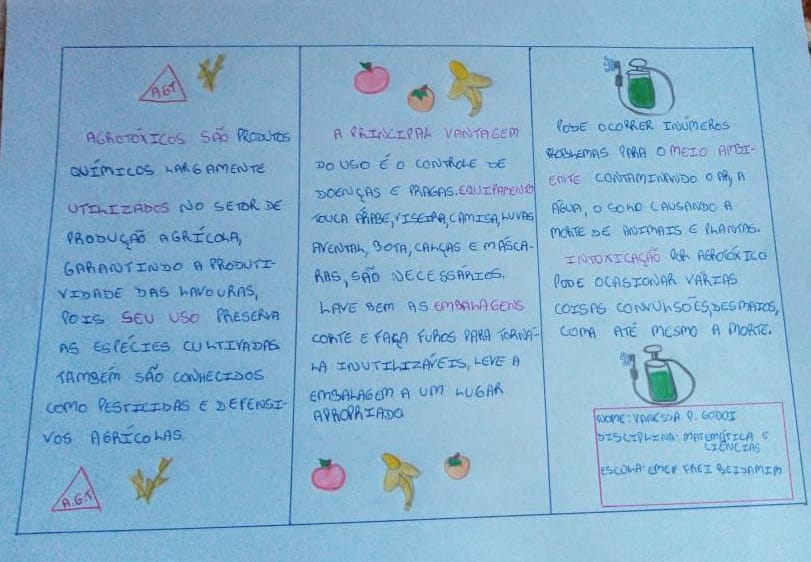 A.G.T
AGROTÓXICOS SÃO PRODUTOS
QUÍMICOS LARGAMENTE
UTILIZADOS NO SETOR DE
PRODUÇÃO AGRÍCOLA,
GARANTINDO A PRODUTI-
VIDADE DAS LAVOURAS,
POIS SEU USO PRESERVA
AS ESPÉCIES CULTIVADAS
TAMBÉM SÃO CONHECIDOS
COMO PESTICIDAS E DEFENSI-
VOS AGRÍCOLAS.
A.G.T
A PRINCIPAL VANTAGEM
DO USO É O CONTROLE DE
DOENÇAS E PRAGAS. EQUIPAMENTO
TOUCA ÁRABE, VISEIRA, CAMISA, LUVAS
AVENTAL, BOTA, CALÇAS E MÁSCA-
RAS, SÃO NECESSÁRIOS.
LAVE BEM AS EMBALAGENS
CORTE E FAÇA FUROS PARA TORNA-
LA INUTILIZÁVEIS, LEVE A
EMBALAGEM A UM LUGAR
APROPRIADO
PODE OCORRER INÚMEROS
PROBLEMAS PARA O MEIO AMBI-
ENTE CONTAMINANDO O AR, A
ÁGUA, O SOLO CAUSANDO A
MORTE DE ANIMAIS E PLANTAS.
INTOXICAÇÃO POR AGROTÓXICO
PODE OCASIONAR VÁRIAS
COISAS CONVULSÕES, DESMAIOS,
COMA ATÉ MESMO A MORTE.
NOME: VANESSA P. GODOI
DISCIPLINA: MATEMÁTICA E
CIÊNCIAS
ESCOLA: EMCF FREI BEIJAMIM